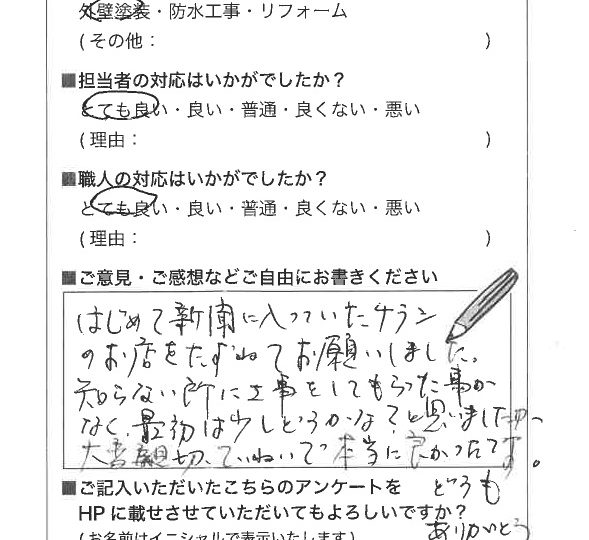 外壁塗装・防水工事・リフォーム
(その他： )
■担当者の対応はいかがでしたか？
とても良い・良い・普通・良くない・悪い
(理由： )
■職人の対応はいかがでしたか？
とても良い・良い・普通・良くない・悪い
(理由： )
■ご意見・ご感想などご自由にお書きください
はじめて新聞に入っていたチラシ
のお店をたずねてお願いしました。
知らない所に工事をしてもらった事が
なく、最初は少しどうかな？と思いましたが、
大変親切、ていねいで本当に良かったです。
どうも
ありがとう
■ご記入いただいたこちらのアンケートを
HPに載せさせていただいてもよろしいですか？
(お名前はイニシャルで表示いたします)